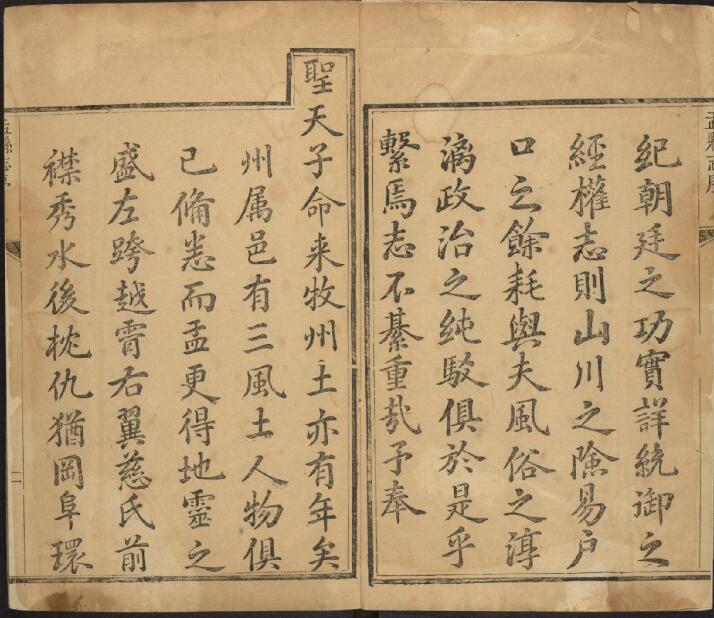 紀朝廷之功實詳統御之
經權志則山川之險易户
口之餘耗與夫風俗之淳
漓政治之純駁俱於是乎
繫焉志不綦重㢤予奉
聖天子命来牧州土亦有年矣
州属邑有三風土人物俱
已俻悉而盂更得地靈之
盛左跨越霄右翼慈氏前
襟秀水後枕仇猶岡阜環
盂縣志序
二